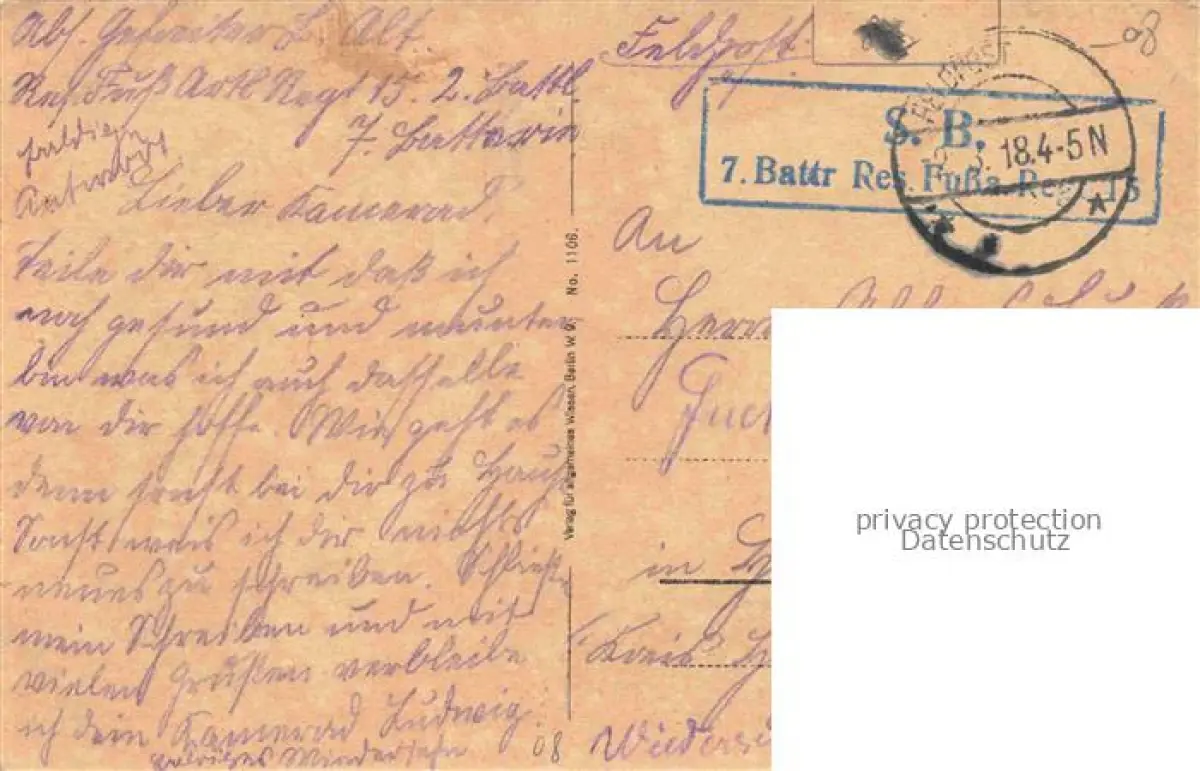 Abs. Gefreiter L. Alt.
Res. Fuß Artl. Regt 15. 2. Battl.
7. Batterie
baldige
Antwort
Lieber Kamerad.
Teile dir mit daß ich
noch gesund und munter
bin was ich auch dasselbe
von dir hoffe. Wie geht es
denn sonst bei dir zu Haus
Sonst weis ich dir nichts
neues zu schreiben. Schließe
mein Schreiben und mit
vielen Grüßen verbleibe
ich dein Kamerad Ludwig.
Wiedersehn
08
Verlag für allgemeines Wissen, Berlin W. 9. No. 1106.
Feldpost.
-08
FELDPOST
18.4-5N
S. B.
7. Battr Res. Fußa. Reg. 15
An
Herrn
in
Kreis
privacy protection
Datenschutz